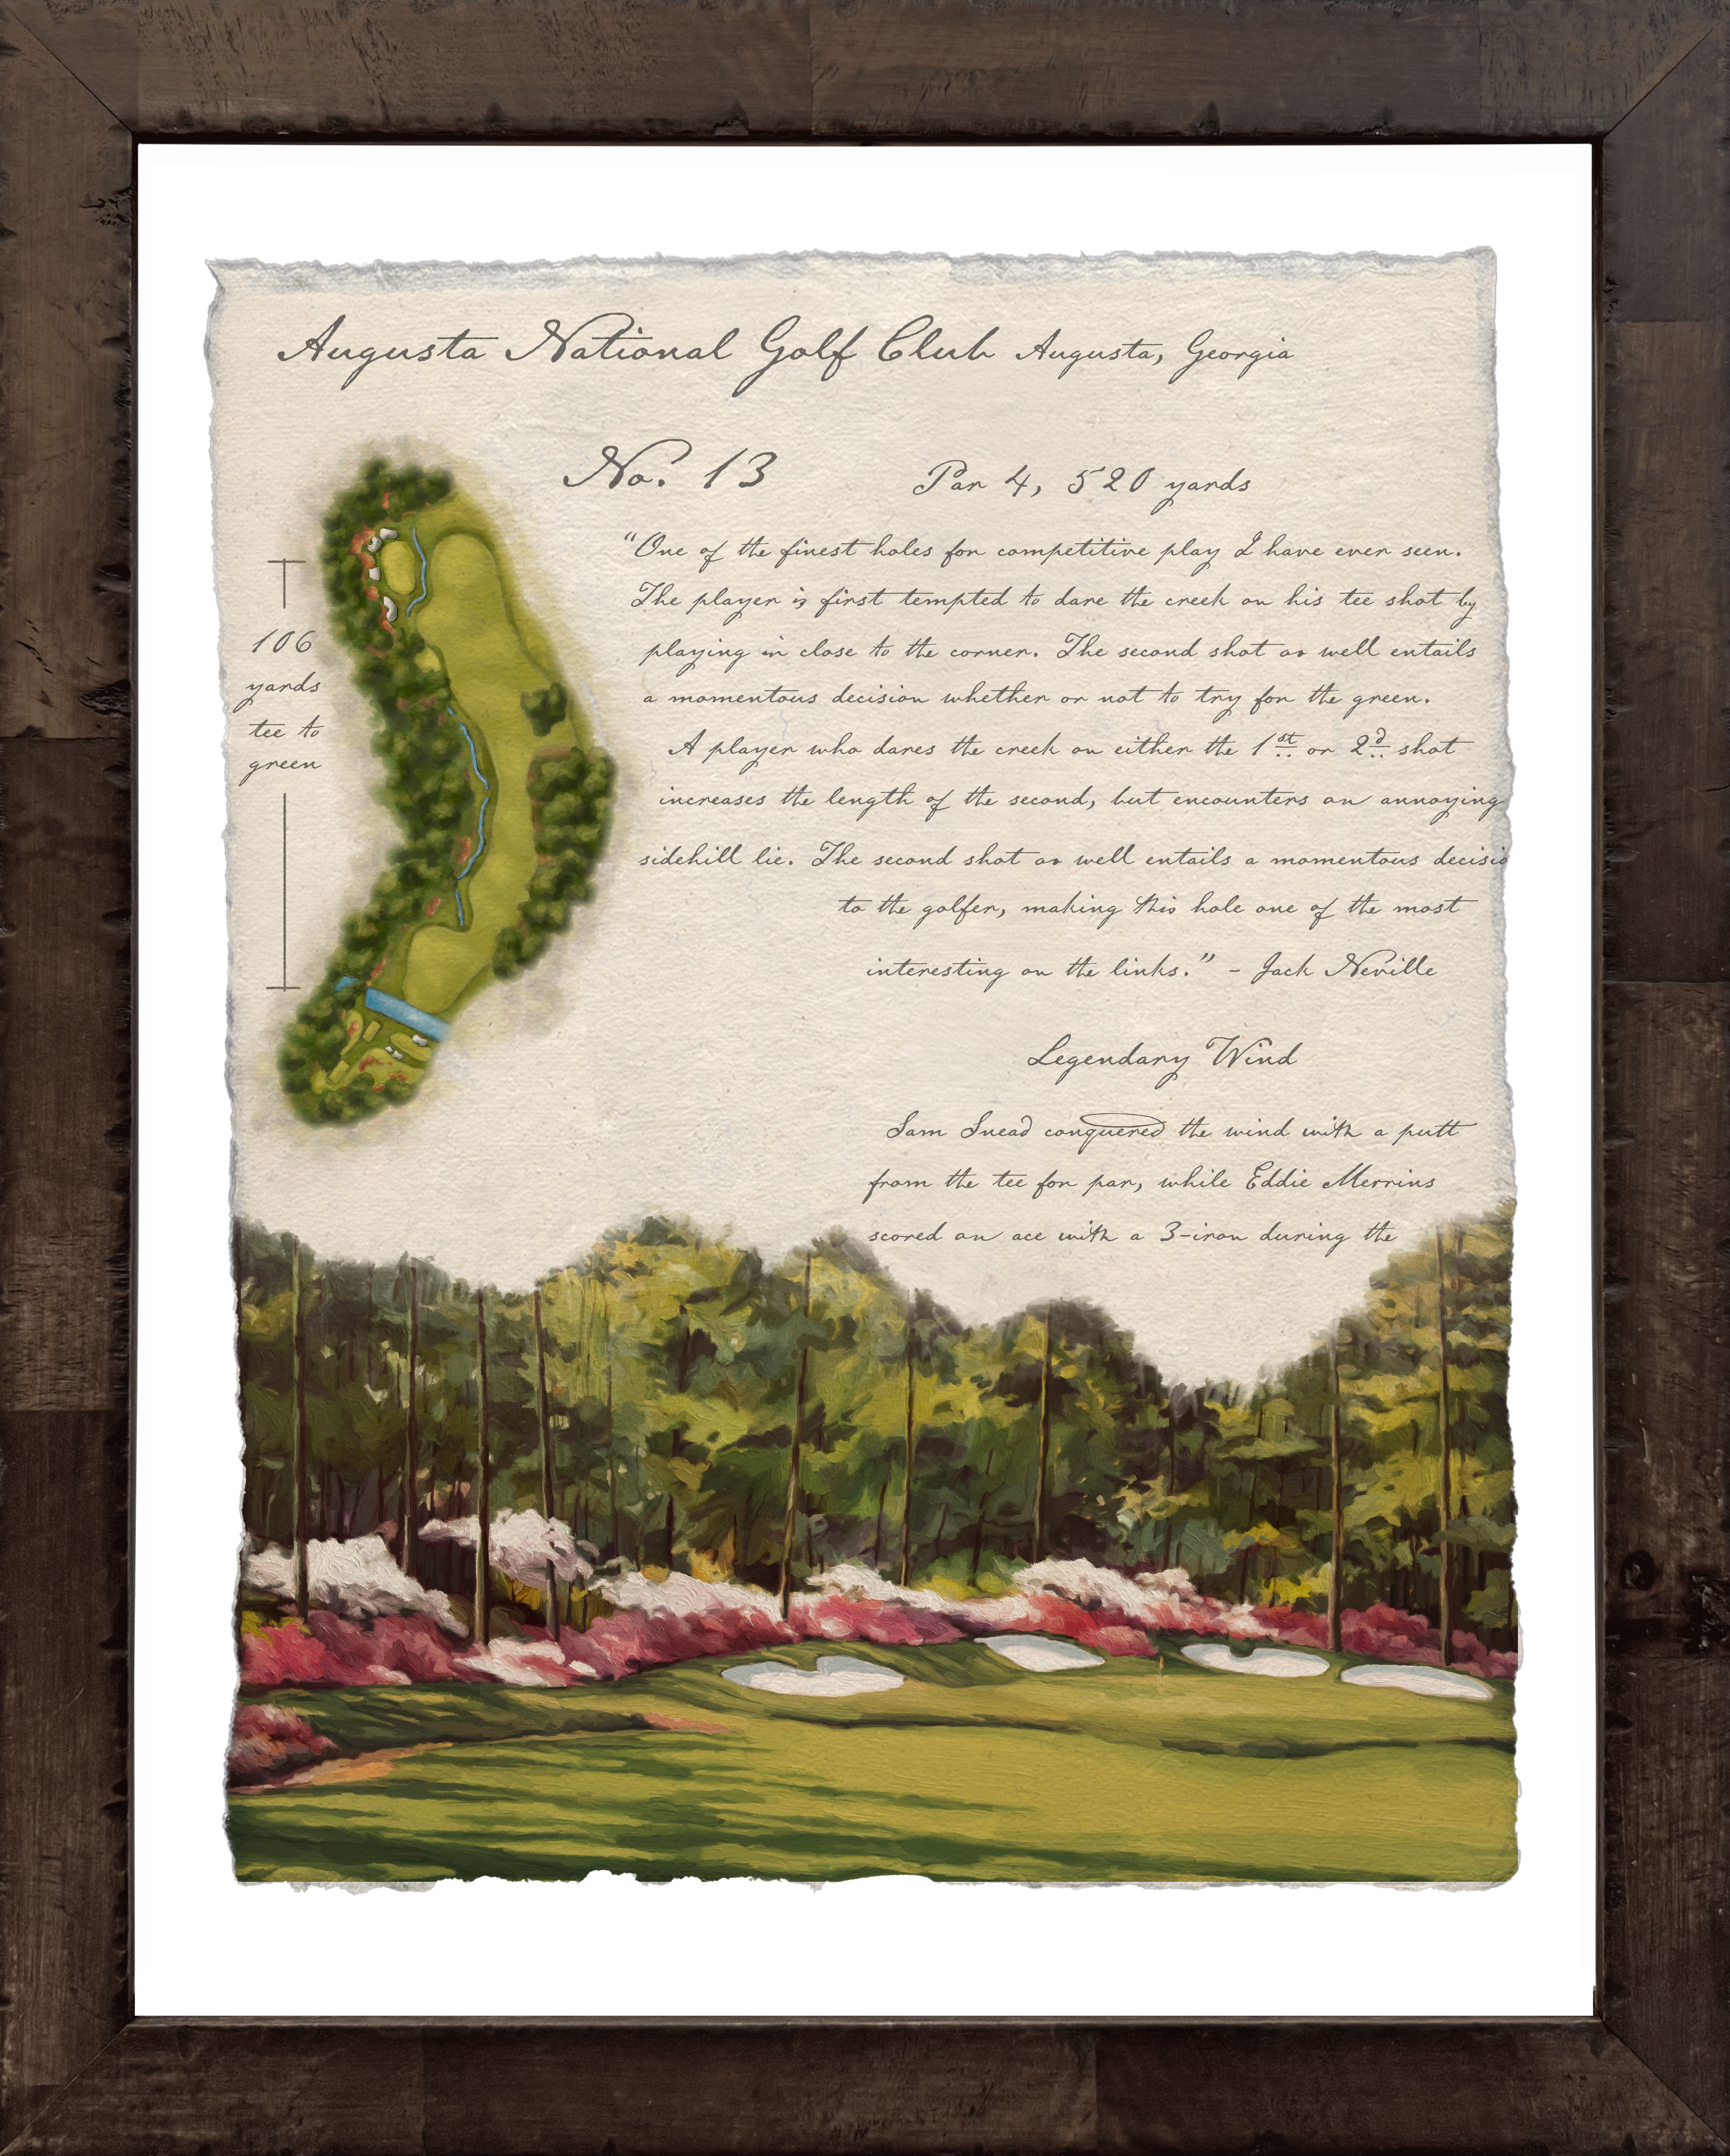 Augusta National Golf Club Augusta, Georgia
No. 13 Par 4, 520 yards
"One of the finest holes for competitive play I have ever seen.
The player is first tempted to dare the creek on his tee shot by
playing in close to the corner. The second shot as well entails
a momentous decision whether or not to try for the green.
A player who dares the creek on either the 1st or 2d shot
increases the length of the second, but encounters an annoying
sidehill lie. The second shot as well entails a momentous decisio
to the golfer, making this hole one of the most
interesting on the links." - Jack Neville
106
yards
tee to
green
Legendary Wind
Sam Snead conquered the wind with a putt
from the tee for par, while Eddie Merrins
scored an ace with a 3-iron during the